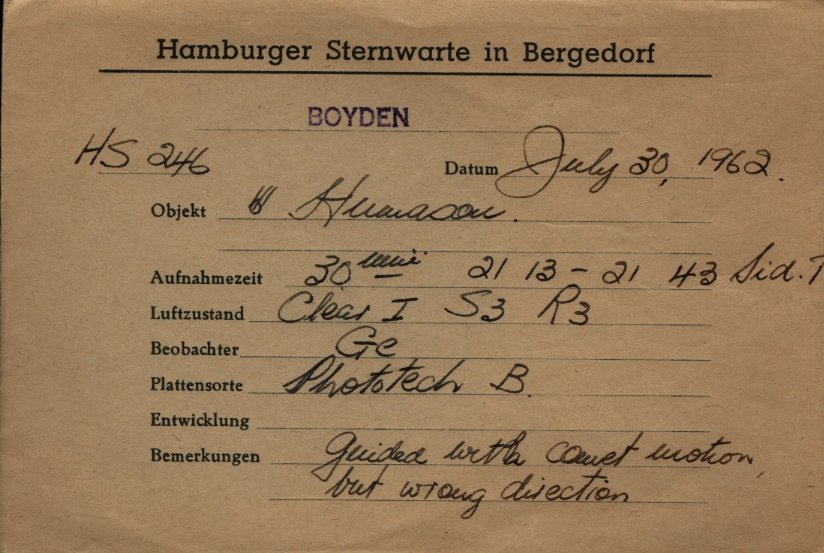 Hamburger Sternwarte in Bergedorf
BOYDEN
HS 246 Datum July 30, 1962.
Objekt Humason.
Aufnahmezeit 30 min 21 13 - 21 43 Sid. T
Luftzustand Clear I S3 R3
Beobachter Ge
Plattensorte Phototech B.
Entwicklung
Bemerkungen guided with comet motion,
but wrong direction